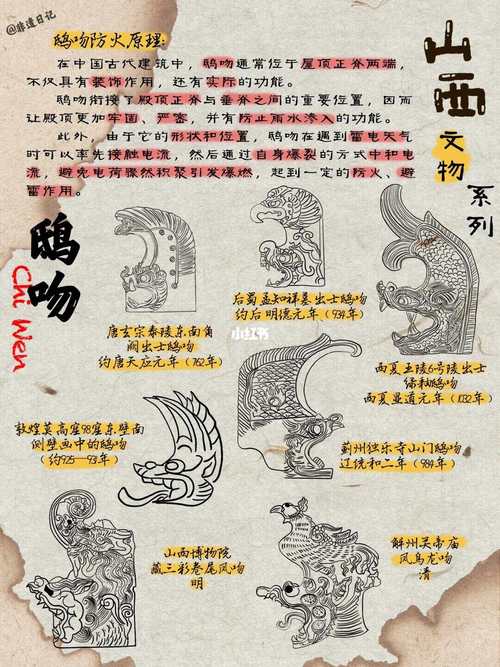 @非遗日记
山西
文物
系列
鸱吻防火原理:
在中国古代建筑中，鸱吻通常位于屋顶正脊两端，
不仅具有装饰作用，还有实际的功能。
鸱吻衔接了殿顶正脊与垂脊之间的重要位置，因而
让殿顶更加牢固、严密，并有防止雨水渗入的功能。
此外，由于它的形状和位置，鸱吻在遇到雷电天气
时可以率先接触电流，然后通过自身爆裂的方式中和电
流，避免电荷骤然积聚引发爆燃，起到一定的防火、避
雷作用。
鸱吻
Chi Wen
后蜀孟知祥墓出土鸱吻
约后明德元年（934年）
小红书
唐玄宗泰陵东南角
阙出土鸱吻
约唐天应元年（762年）
西夏王陵6号陵出土
绿釉鸱吻
西夏显道元年（1032年）
敦煌莫高窟98窟东壁南
侧壁画中的鸱吻
（约925—931年）
蓟州独乐寺山门鸱吻
辽统和二年（984年）
山西博物院
藏三彩卷尾风吻
明
解州关帝庙
风鸟龙吻
清